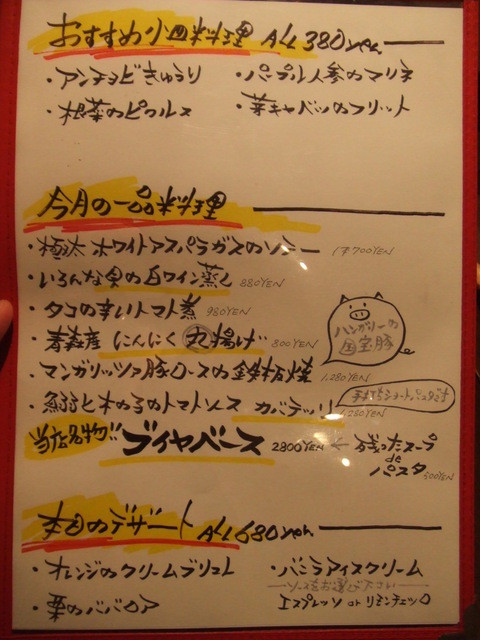 おすすめ小皿料理 ALL 380yen
・アンチョビきゅうり ・パープル人参のマリネ
・根菜のピクルス ・芽キャベツのフリット
今月の一品料理
・極太ホワイトアスパラガスのソテー 1本700YEN
・いろんな貝の白ワイン蒸し 880YEN
・タコの辛いトマト煮 980YEN
・青森産 にんにく 丸揚げ 800YEN
ハンガリーの
国宝豚
・マンガリッツァ豚ロースの鉄板焼 1,280YEN
手打ちショートパスタです
・鮪と木の子のトマトソース カバテッリ 1,280YEN
当店名物!! ブイヤベース 2800YEN ← 残ったスープ
de
パスタ 500YEN
本日のデザート ALL 680yen
・オレンジのクリームブリュレ ・バニラアイスクリーム
ソースをお選び下さい
・栗のババロア エスプレッソ or リモンチェッロ